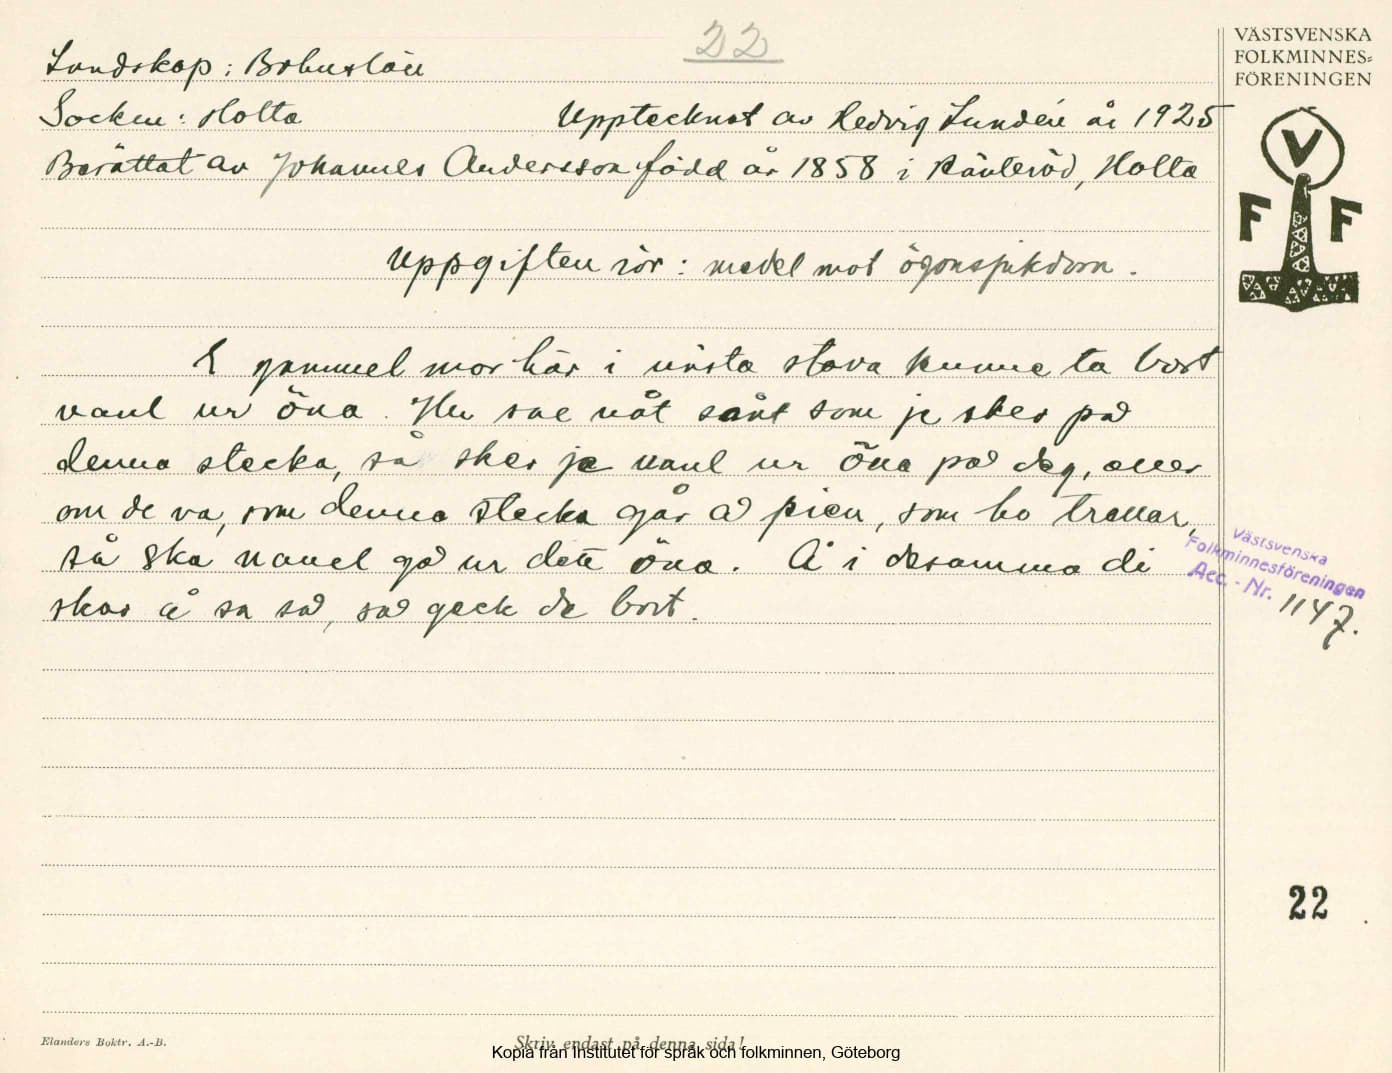 22
VÄSTSVENSKA
FOLKMINNES=
FÖRENINGEN
V
F F
Landskap: Bohuslän
Socken: Holta Upptecknat av Hedvig Lundén år 1925
Berättat av Johannes Andersson född år 1858 i Ränteröd, Holta
Uppgiften rör: medel mot ögonsjukdom.
E gammel mor här i nästa stova kunne ta bort
vanl ur öna. Hu sae nåt sånt som je sker på
denna stecka, så sker je vanl ur öna på deg, eller
om de va, som denna stecka går å pien, som ho trallar,
så ska vanel gå ur dett öna. Å i desamma di
skar å sa så, så geck de bort.
Västsvenska
Folkminnesföreningen
Acc. - Nr. 1147.
22
Elanders Boktr. A.-B.
Skriv endast på denna sida!
Kopia från Institutet för språk och folkminnen, Göteborg